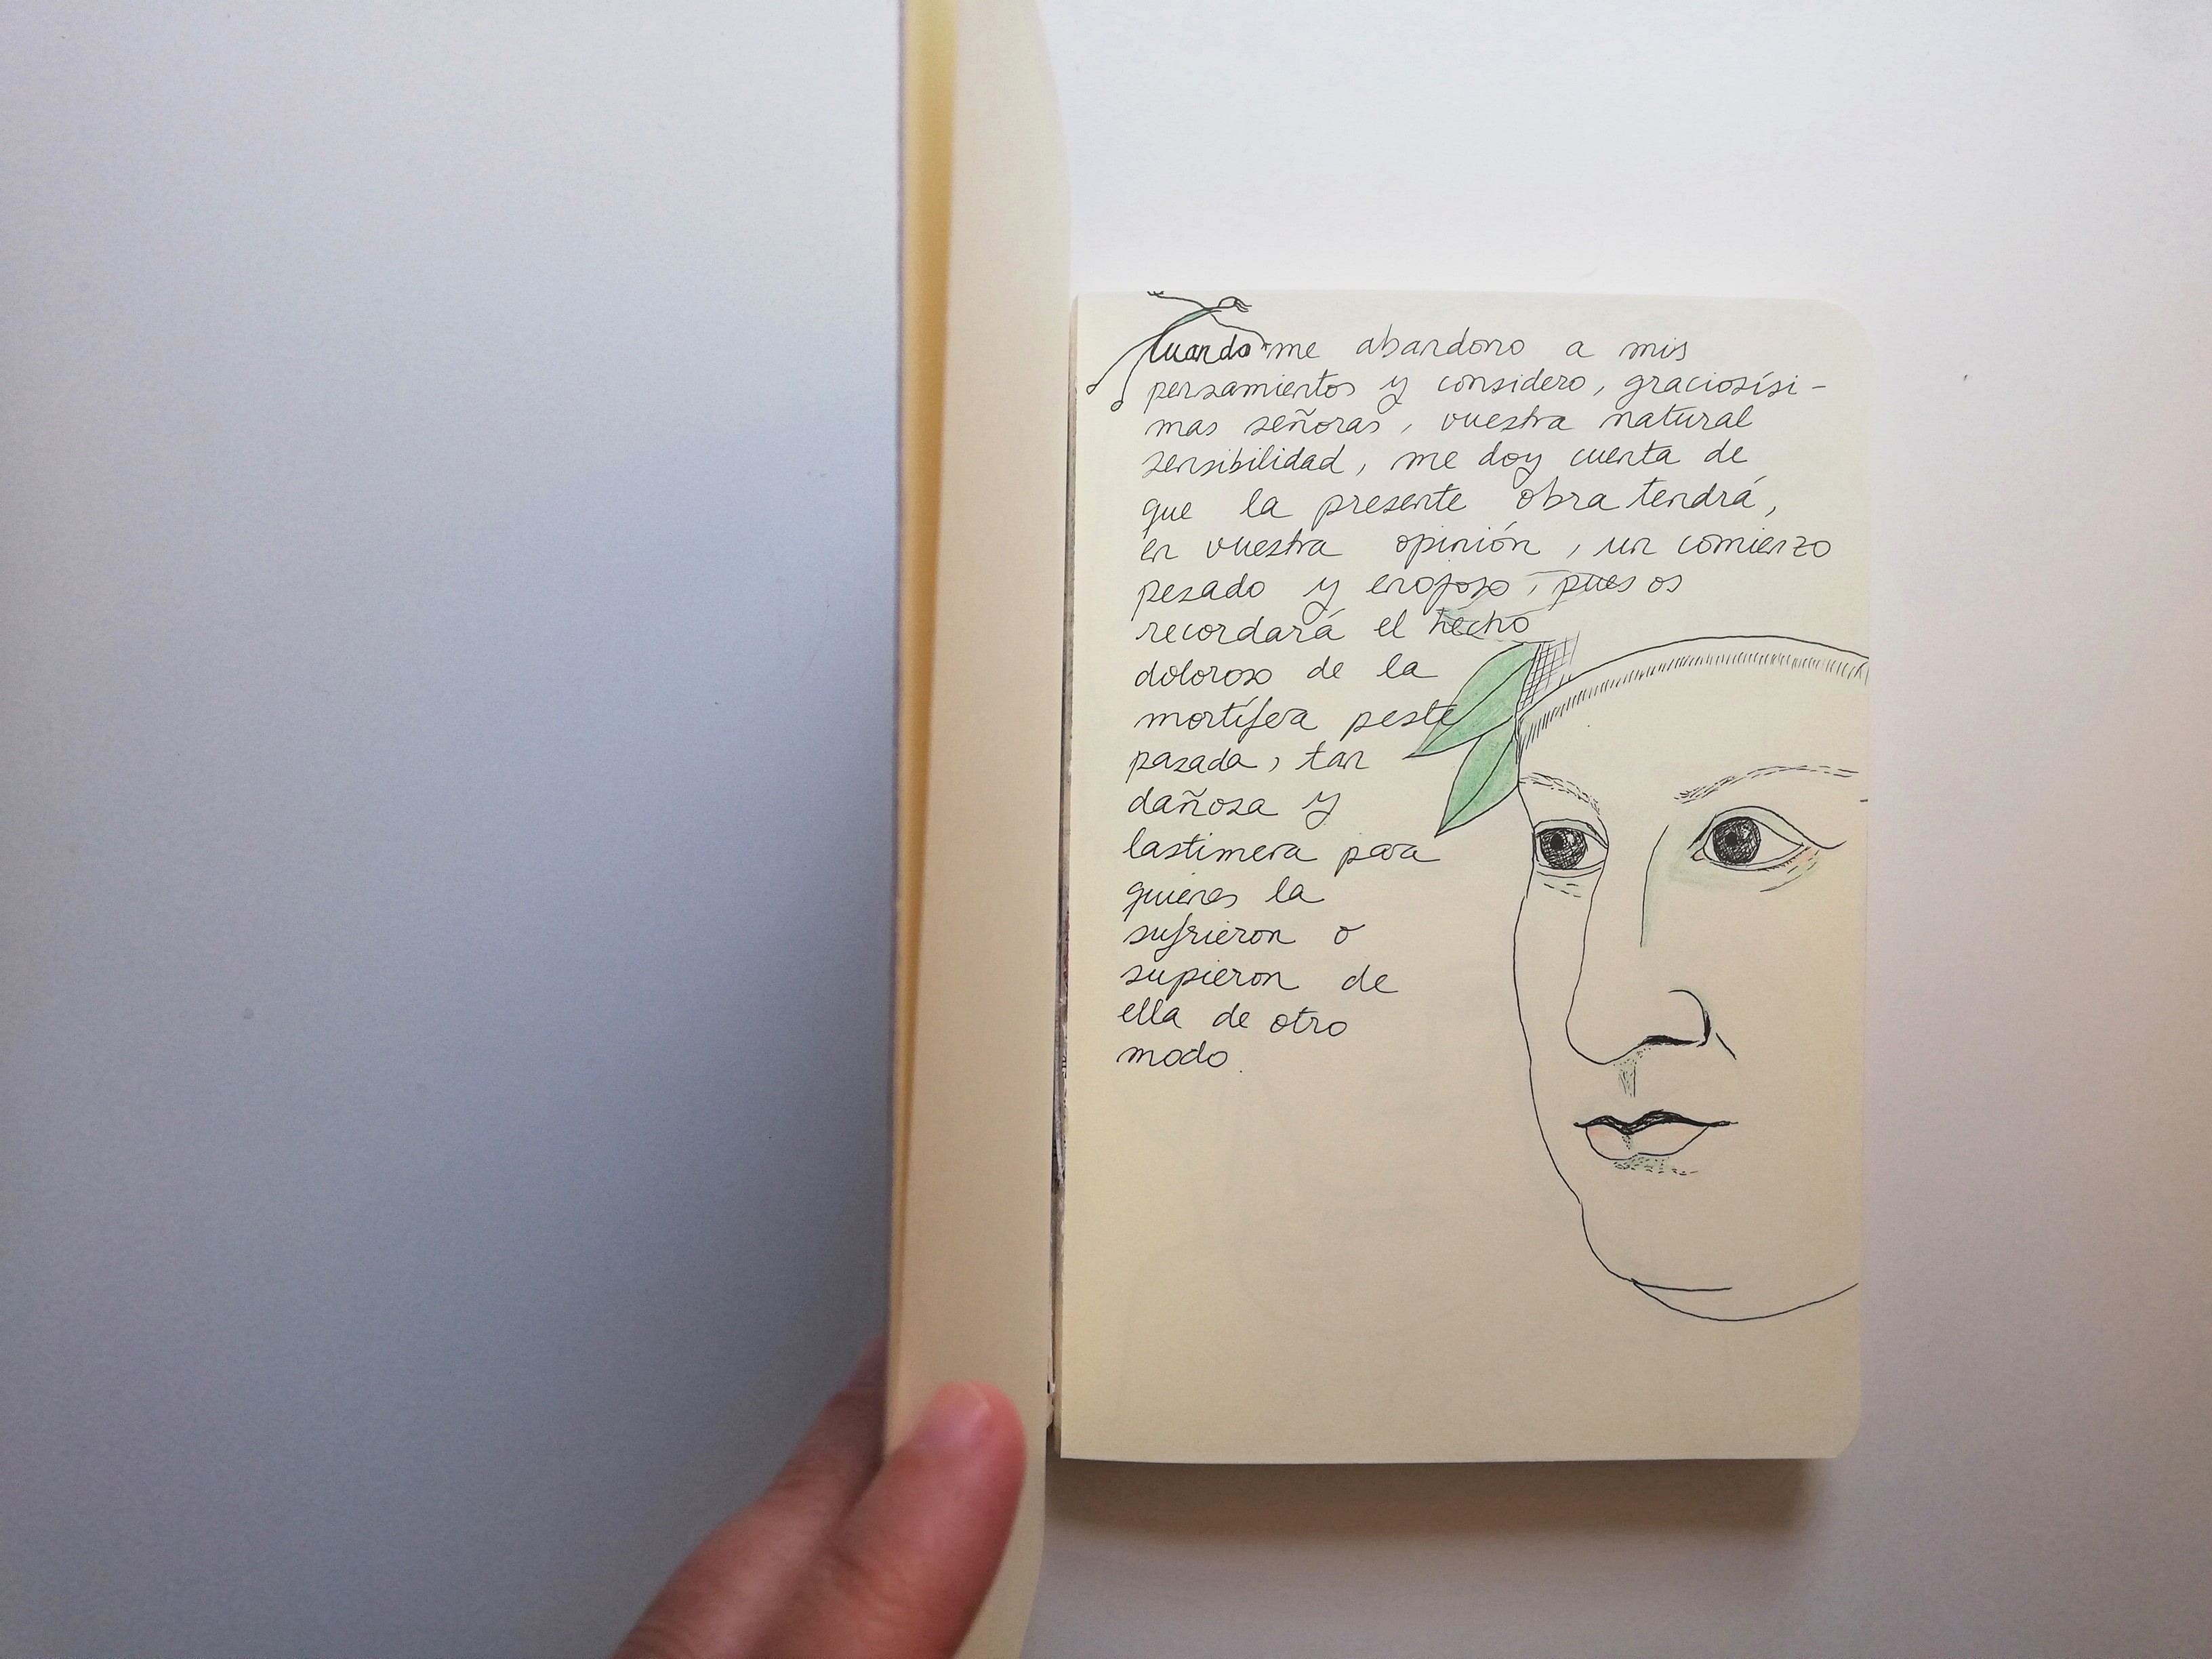 Cuando me abandono a mis
pensamientos y considero, graciosísi-
mas señoras, vuestra natural
sensibilidad, me doy cuenta de
que la presente obra tendrá,
en vuestra opinión, un comienzo
pesado y enojoso, pues os
recordará el hecho
doloroso de la
mortífera peste
pasada, tan
dañosa y
lastimera para
quienes la
sufrieron o
supieron de
ella de otro
modo.